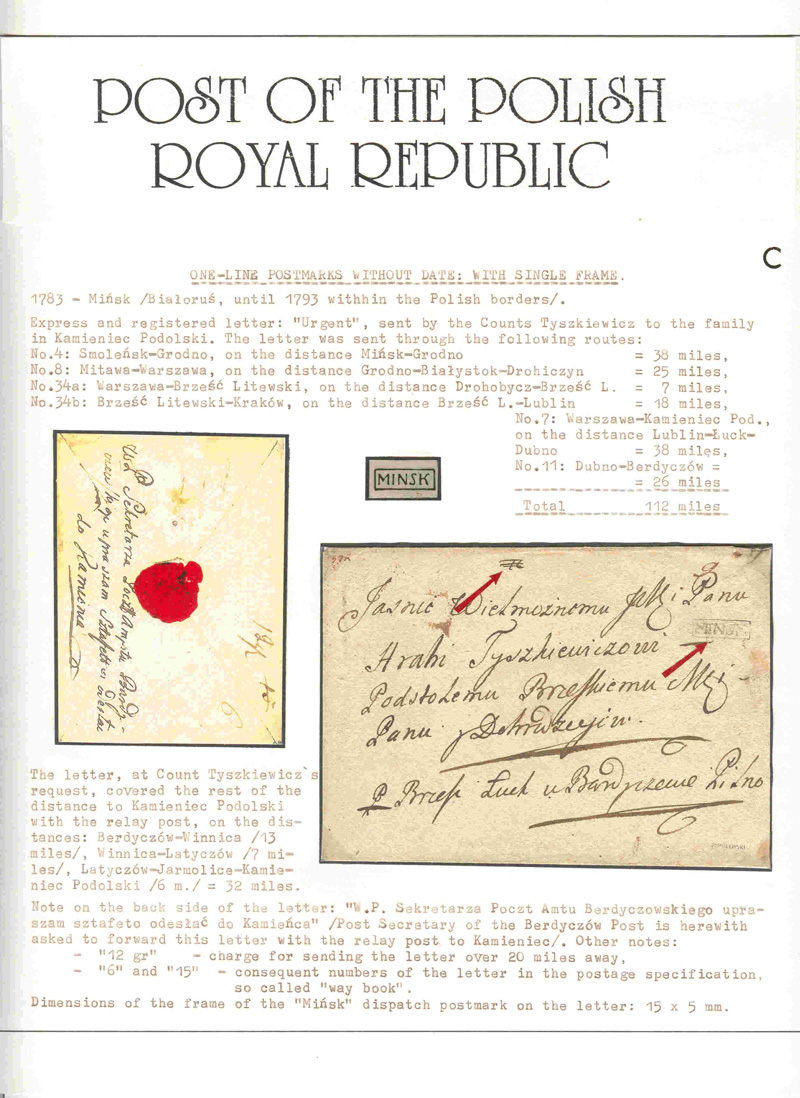 POST OF THE POLISH
ROYAL REPUBLIC
C
ONE-LINE POSTMARKS WITHOUT DATE: WITH SINGLE FRAME.
1783 - Mińsk /Białoruś, until 1793 withhin the Polish borders/.
Express and registered letter: "Urgent", sent by the Counts Tyszkiewicz to the family
in Kamieniec Podolski. The letter was sent through the following routes:
No.4: Smoleńsk-Grodno, on the distance Mińsk-Grodno = 38 miles,
No.8: Mitawa-Warszawa, on the distance Grodno-Białystok-Drohiczyn = 25 miles,
No.34a: Warszawa-Brześć Litewski, on the distance Drohobycz-Brześć L. = 7 miles,
No.34b: Brześć Litewski-Kraków, on the distance Brześć L.-Lublin = 18 miles,
No.7: Warszawa-Kamieniec Pod.,
on the distance Lublin-Łuck-
Dubno = 38 miles,
No.11: Dubno-Berdyczów =
= 26 miles
Total 112 miles
WJ P Sekretarza Poczt Amptu Berdy-
do Kamieńca
MINSK
Jasnie Wielmożnemu JMci Panu
MINSK
Hrabi Tyszkiewiczowi
Podstolemu Brzeskiemu Mci
Panu y Dobrodzejowi.
P Brześć Łuck u Bardyczewie Pilno
The letter, at Count Tyszkiewicz`s
request, covered the rest of the
distance to Kamieniec Podolski
with the relay post, on the dis-
tances: Berdyczów-Winnica /13
miles/, Winnica-Latyczów /7 mi-
les/, Latyczów-Jarmolice-Kamie-
niec Podolski /6 m./ = 32 miles.
Note on the back side of the letter: "W.P. Sekretarza Poczt Amtu Berdyczowskiego upra-
szam sztafeto odesłać do Kamieńca" /Post Secretary of the Berdyczów Post is herewith
asked to forward this letter with the relay post to Kamieniec/. Other notes:
- "12 gr" - charge for sending the letter over 20 miles away,
- "6" and "15" - consequent numbers of the letter in the postage specification,
so called "way book".
Dimensions of the frame of the "Mińsk" dispatch postmark on the letter: 15 x 5 mm.